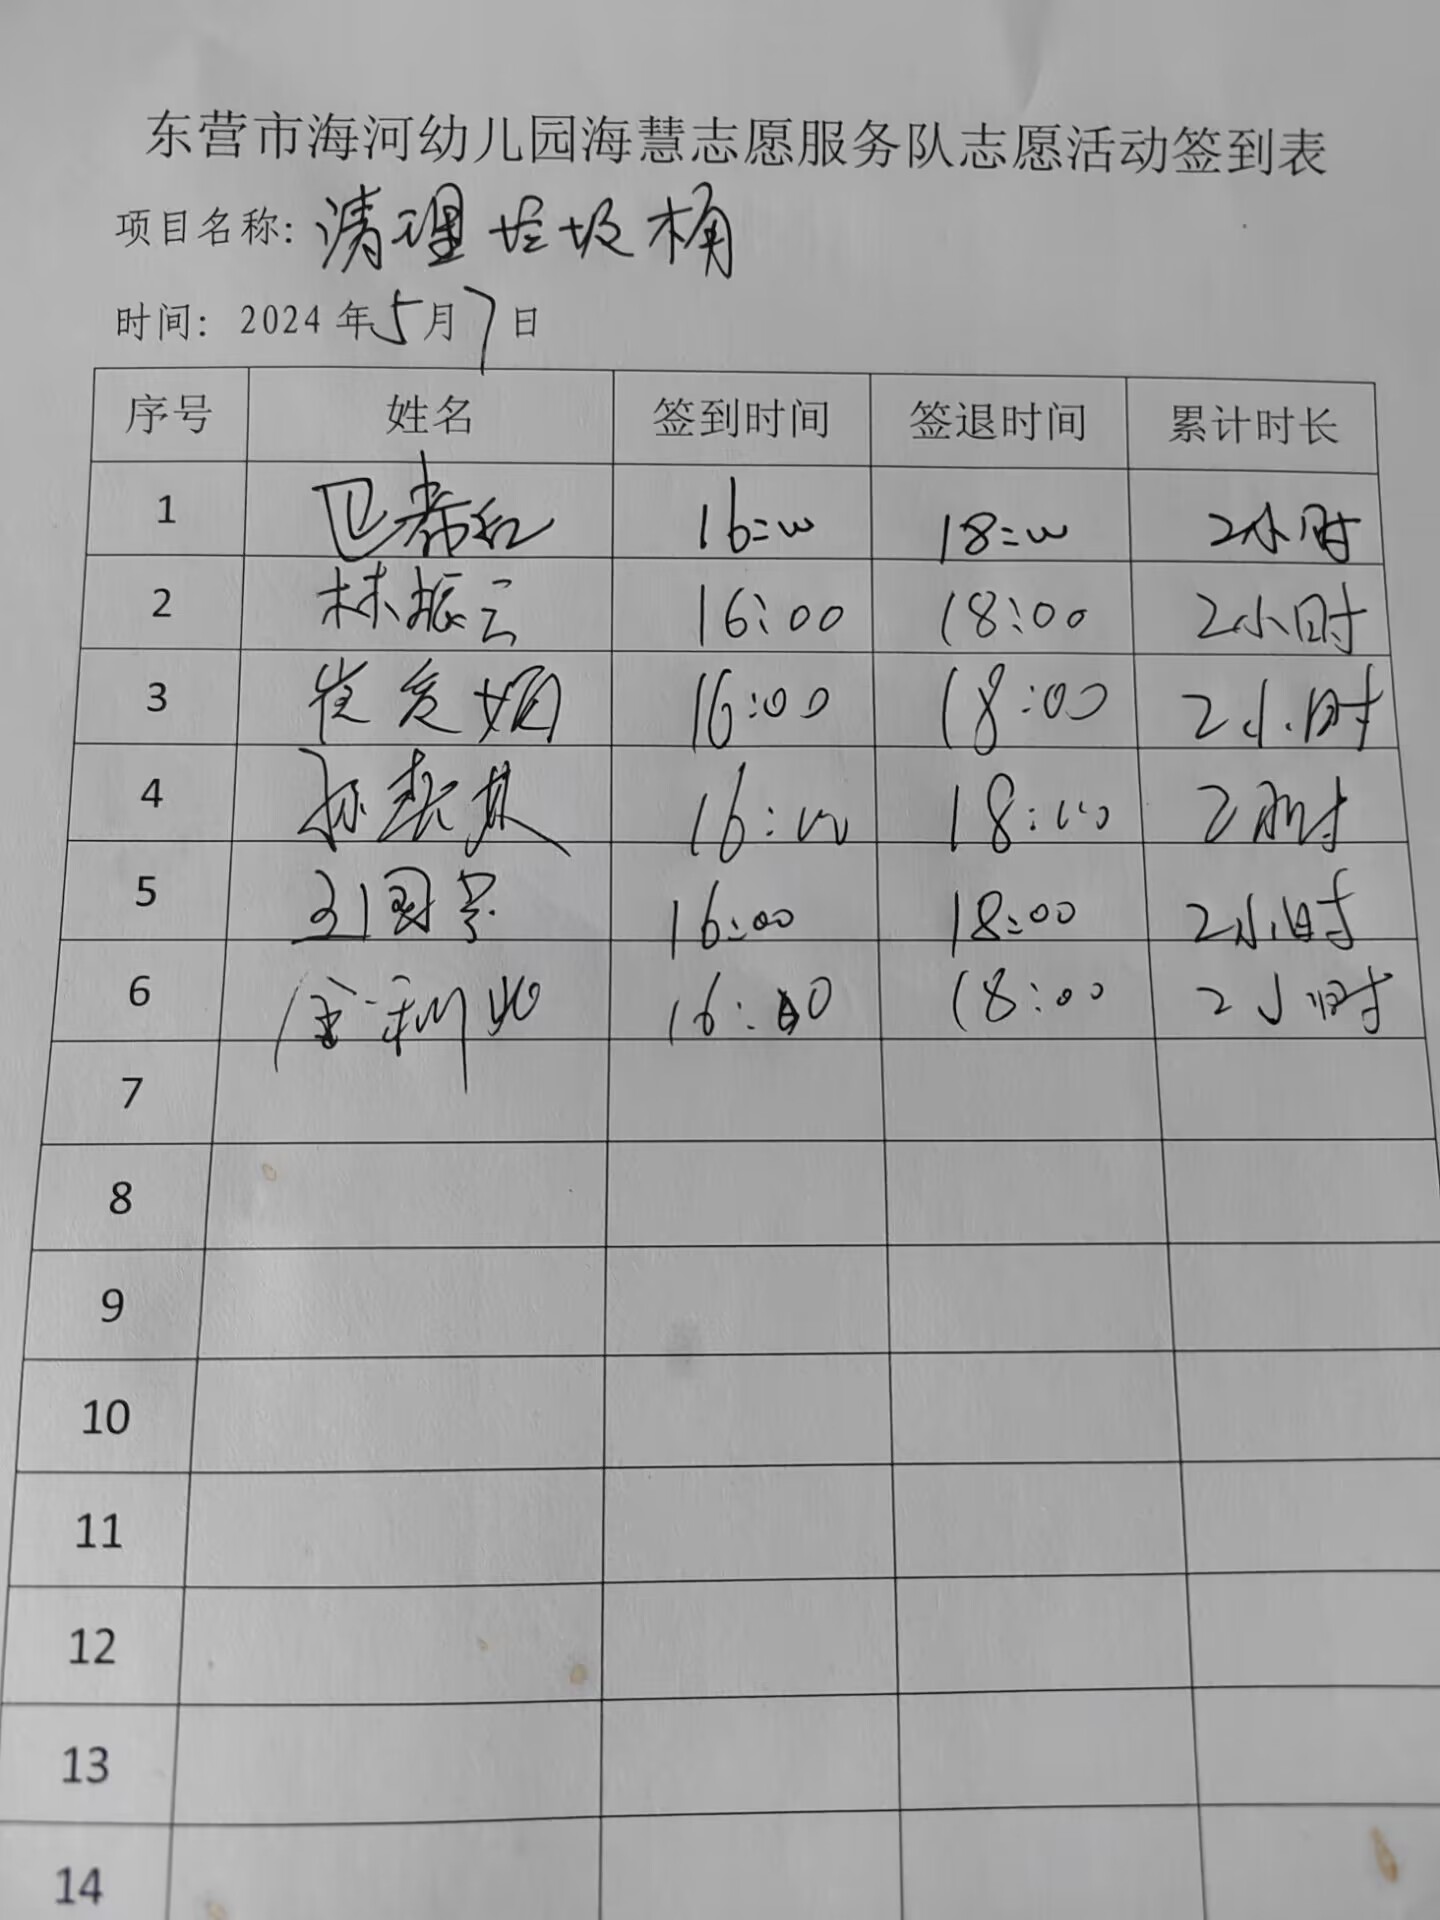 东营市海河幼儿园海慧志愿服务队志愿活动签到表
项目名称: 清理垃圾桶
时间: 2024年5月7日
序号 姓名 签到时间 签退时间 累计时长
1 16:00 18:00 2小时
2 林振云 16:00 18:00 2小时
3 崔爱娟 16:00 18:00 2小时
4 16:00 18:00 2小时
5 16:00 18:00 2小时
6 16:00 18:00 2小时
7
8
9
10
11
12
13
14